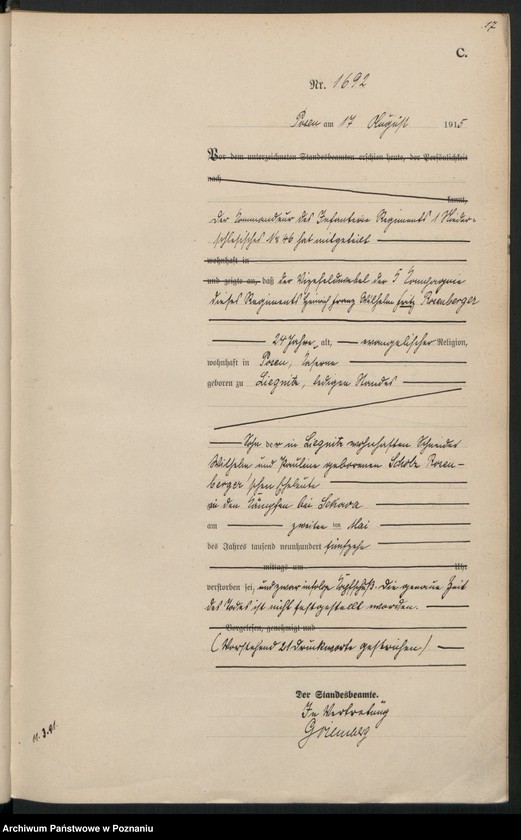 17
C.
Nr. 1692
Posen am 17 August 1915
Vor dem unterzeichneten Standesbeamten erschien heute, der Persönlichkeit
nach
kannt,
Der Kommandeur des Infanterie Regiments 1 Nieder-
schlesisches No 46 hat mitgeteilt
wohnhaft in
und zeigte an, daß der Vizefeldwebel der 5 Kompagnie
dieses Regiments Heinrich Franz Wilhelm Fritz Rosenberger
24 Jahre alt, evangelischer Religion,
wohnhaft in Posen, Kaserne
geboren zu Liegnitz, ledigen Standes
Sohn der in Liegnitz wohnhaften Schneider
Wilhelm und Pauline geborenen Scholz Rosen-
berger'schen Eheleute
in den Kämpfen bei
am zweiten ten Mai
des Jahres tausend neunhundert fünfzehn
mittags um Uhr
verstorben sei, und zwar infolge Kopfschuß. Die genaue Zeit
des Todes ist nicht festgestellt worden.
Vorgelesen, genehmigt und
(Vorstehend 21 Druckworte gestrichen)
Der Standesbeamte.
In Vertretung
11.3.91.
Archiwum Państwowe w Poznaniu